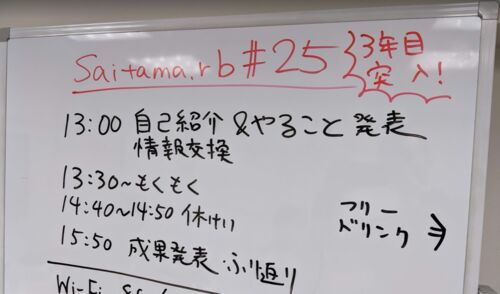 Saitama.rb#25
3年目
突入!
13:00 自己紹介&やること発表
情報交換
13:30~もくもく
14:40~14:50 休けい
15:50 成果発表・ふり返り
フリー
ドリンク ⇒
Wi-Fi